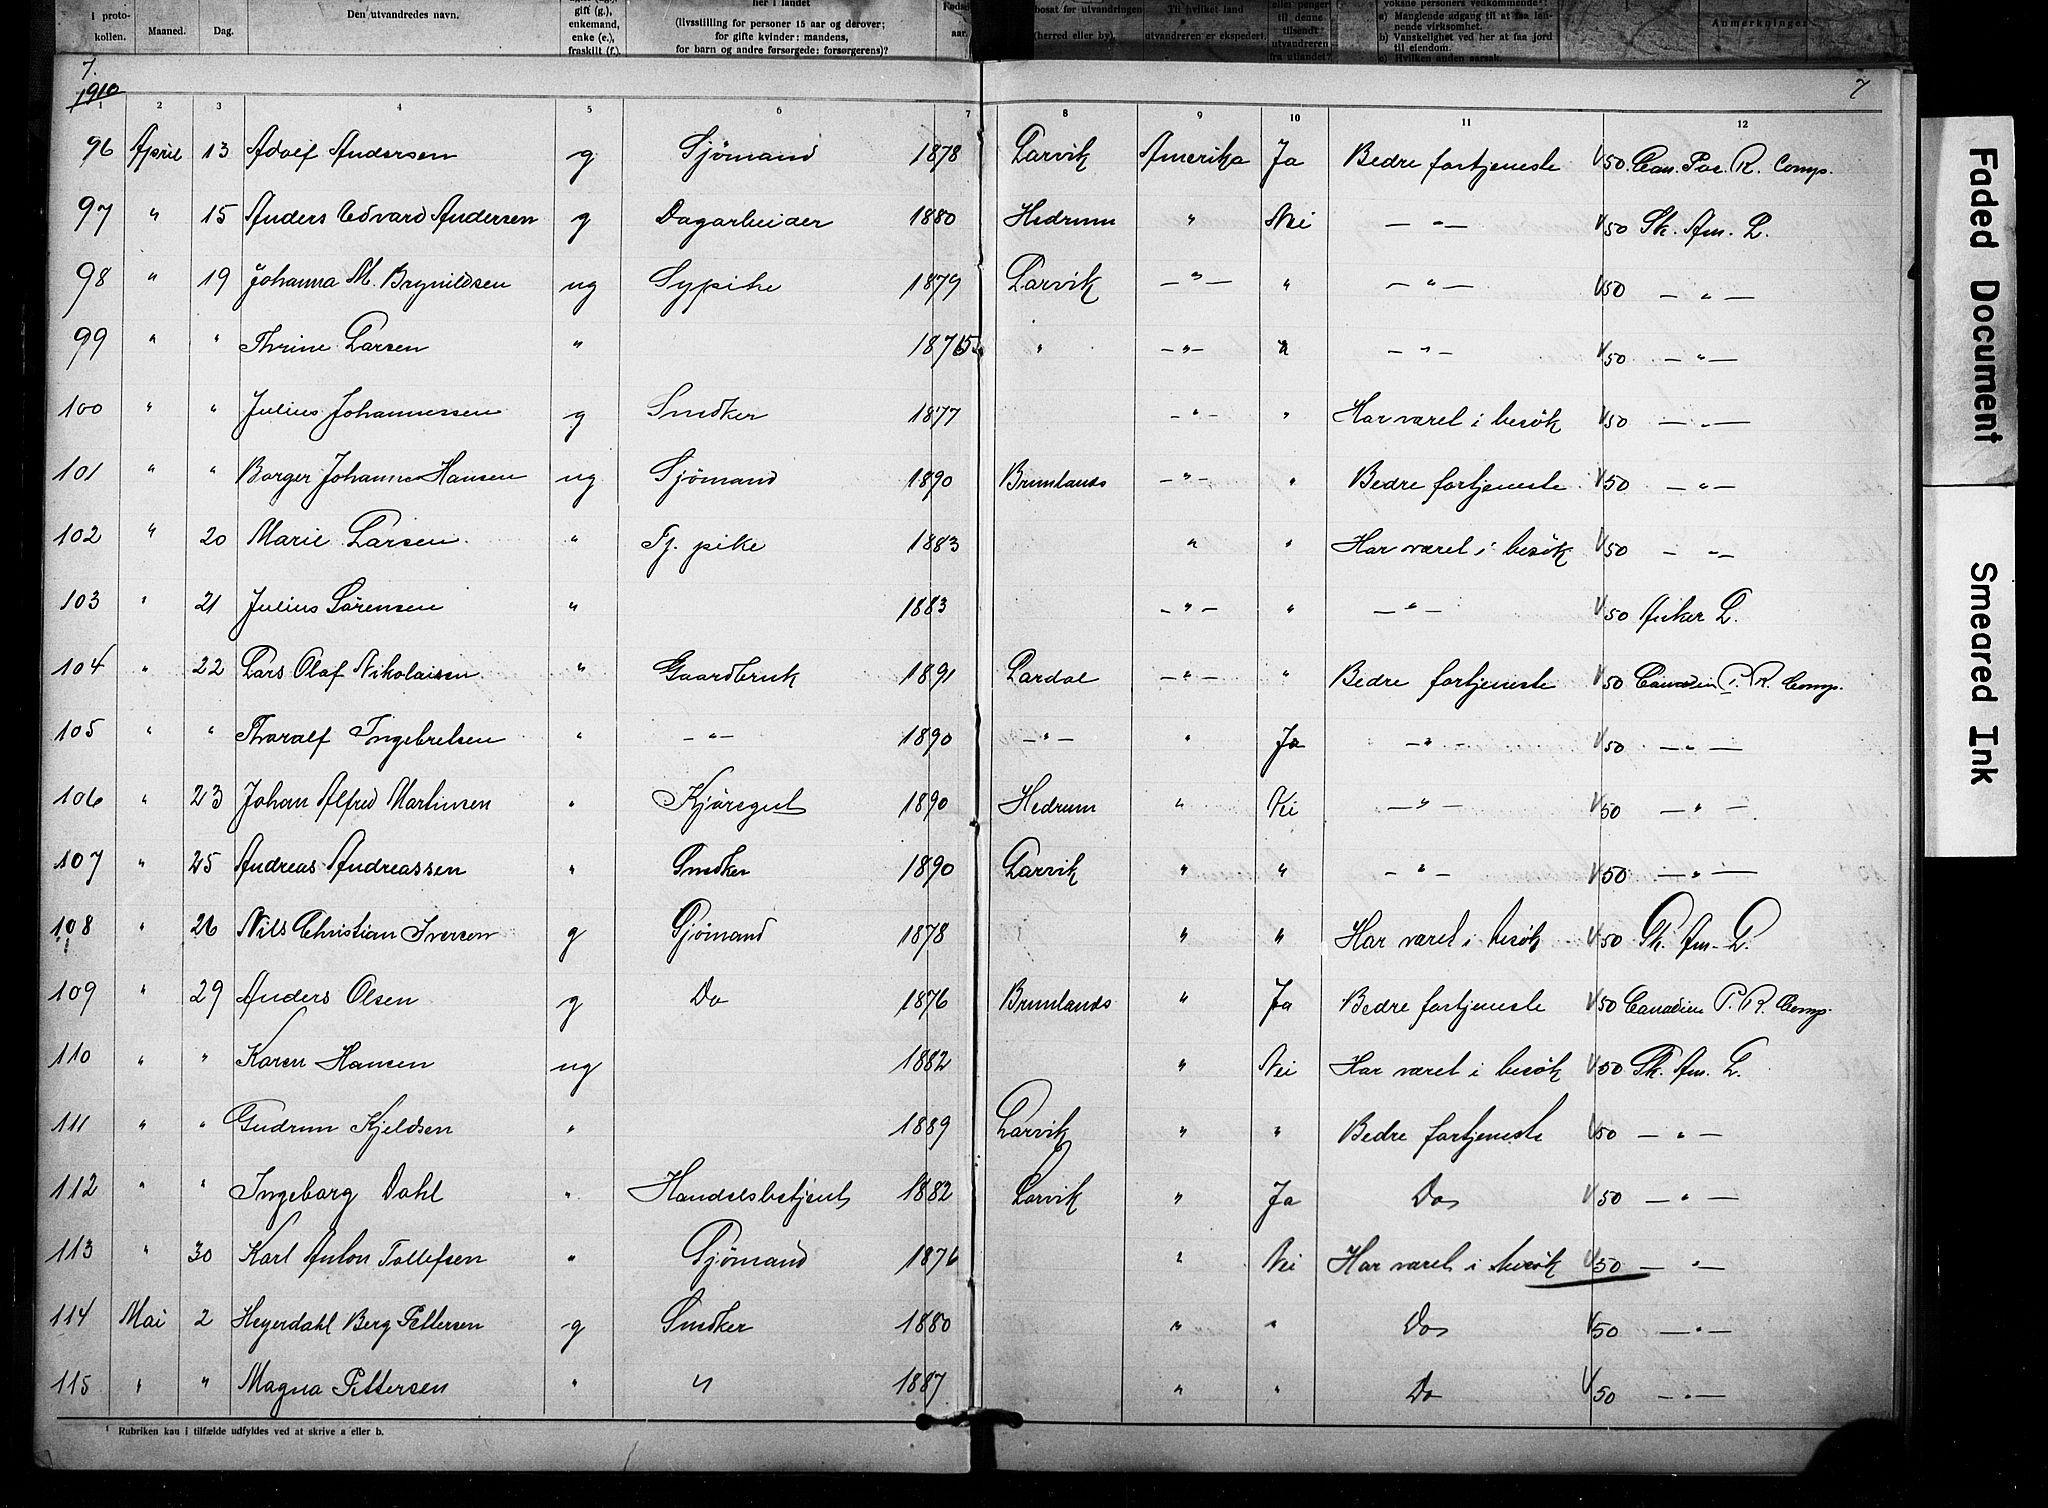 i proto-
kollen.
Maaned.
Dag.
Den utvandredes navn.
gift (g.),
enkemand,
enke (e.),
fraskilt (f.)
her i landet
(livsstilling for personer 15 aar og derover;
for gifte kvinder: mandens,
for barn og andre forsørgede: forsørgerens)?
aar.
bosat før utvandringen
(herred eller by).
Til hvilket land
utvandreren er ekspedert.
eller penger
til denne
tilsendt
utvandreren
fra utlandet?
voksne personers vedkommende:
a) Manglende adgang til at faa løn-
nende virksomhet.
b) Vanskelighet ved her at faa jord
til eiendom.
c) Hvilken anden aarsak.
Anmerkninger.
7.
1910
7
1 2 3 4 5 6 7 8 9 10 11 12
96 April 13 Adolf Andersen g Sjömand 1878 Larvik Amerika Ja Bedre fortjeneste 1/50 Can. Pac. R. Comp.
97 " 15 Anders Edvard Andersen g Dagarbeider 1880 Hedrum " Nei — " — 1/50 Sk. Am. L.
98 " 19 Johanna M. Brynildsen ug Sypike 1879 Larvik — " — " — " — 1/50 — " —
99 " " Thrine Larsen " " — " — " — " — 1/50 — " —
100 " " Julius Johannessen g Snedker 1877 — " — " Har været i besök 1/50 — " —
101 " " Borger Johannes Hansen ug Sjömand 1890 Brunlands — " — " Bedre fortjeneste 1/50 — " —
102 " 20 Marie Larsen " Tj. pike 1883 " " Har været i besök 1/50 — " —
103 " 21 Julius Sörensen " 1883 — " — " — " — 1/50 Anker L.
104 " 22 Lars Olaf Nikolaisen " Gaardbruk 1891 Lardal — " — " Bedre fortjeneste 1/50 Canadien P. R. Comp.
105 " " Thoralf Ingebretsen " — " — 1890 — " — " Ja — " — 1/50 — " —
106 " 23 Johan Alfred Martinsen " Kjöregut 1890 Hedrum " Nei — " — 1/50 — " —
107 " 25 Andreas Andreassen " Snedker 1890 Larvik " " — " — 1/50 — " —
108 " 26 Nils Christian Iversen g Sjömand 1878 " " Har været i besök 1/50 Sk. Am. L.
109 " 29 Anders Olsen g Do 1876 Brunlands " Ja Bedre fortjeneste 1/50 Canadien P. R. Comp.
110 " " Karen Hansen ug 1882 " Nei Har været i besök 1/50 Sk. Am. L.
111 " " Gudrun Kjeldsen " 1889 Larvik " " Bedre fortjeneste 1/50 — " —
112 " " Ingeborg Dahl " Handelsbetjent 1882 Larvik " Ja Do 1/50 — " —
113 " 30 Karl Anton Tollefsen " Sjömand 1876 " Nei Har været i besök 1/50 — " —
114 Mai 2 Heyerdahl Berg Pettersen g Snedker 1880 " " Do 1/50 — " —
115 " " Magna Pettersen " " 1887 " " Do 1/50 — " —
¹ Rubriken kan i tilfælde udfyldes ved at skrive a eller b.
Faded Document
Smeared Ink